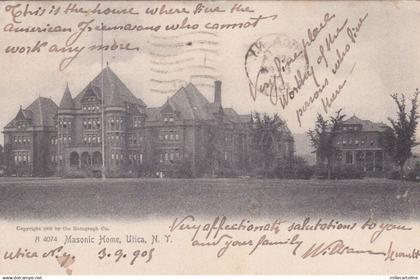 This is the house where live the
american Freemasons who cannot
work any more
Very fine place
Worthy of the
persons who live
there
Copyright 1905 by the Rotograph Co.
A 4074 Masonic Home, Utica, N. Y.
Very affectionate salutations to you
and your family
Utica N.Y. 3.9.905